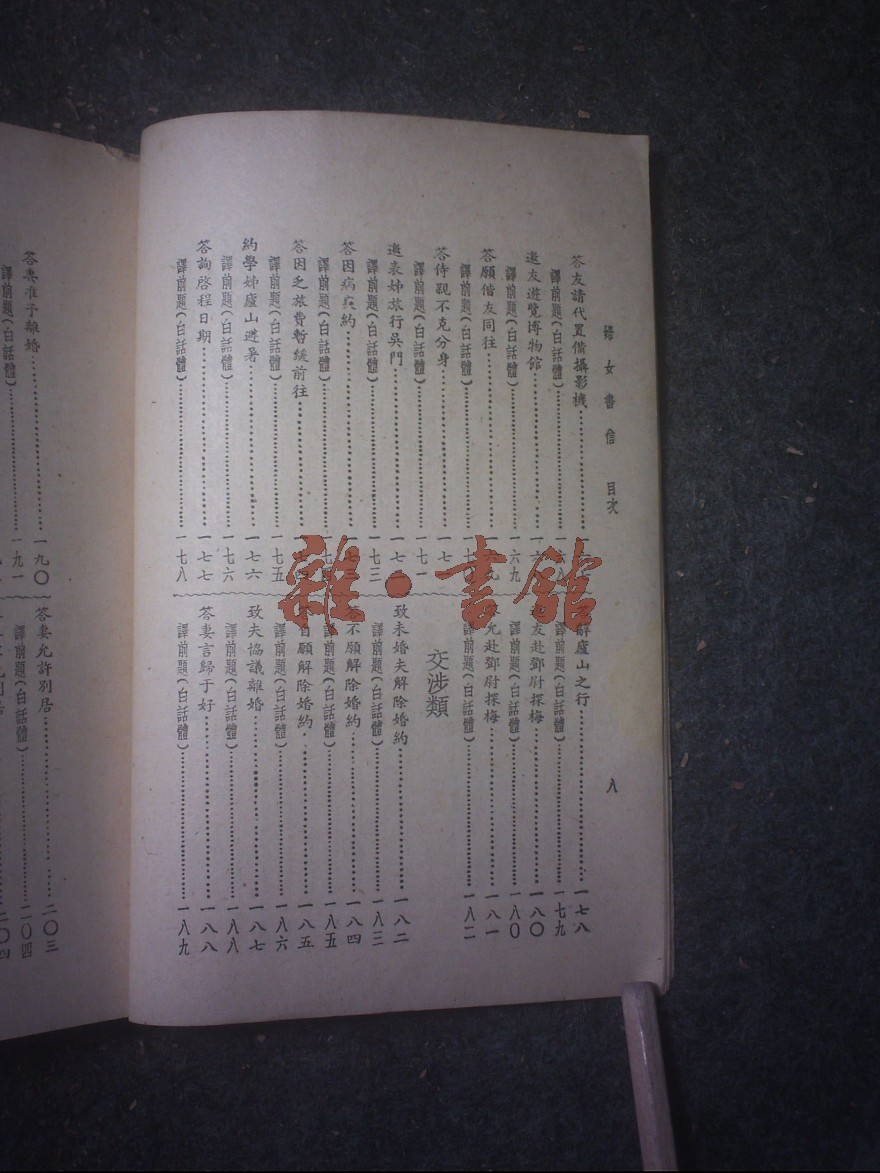 婦女書信 目次
八
答友請代置備攝影機
譯前題(白話體)
邀友遊覽博物館
譯前題(白話體)⋯⋯一六九
答願偕友同往
譯前題(白話體)
答侍親不克分身⋯⋯一七一
邀表姊旅行吳門
譯前題(白話體)⋯⋯一七三
答因病爽約
譯前題(白話體)
答因乏旅費暫緩前往
譯前題(白話體)⋯⋯一七五
約學姊廬山避暑⋯⋯一七六
譯前題(白話體)⋯⋯一七六
答詢啓程日期⋯⋯一七七
譯前題(白話體)⋯⋯一七八
辭廬山之行⋯⋯一七八
譯前題(白話體)⋯⋯一七九
友赴鄧尉探梅⋯⋯一八〇
譯前題(白話體)⋯⋯一八〇
允赴鄧尉探梅⋯⋯一八一
譯前題(白話體)⋯⋯一八二
交涉類
致未婚夫解除婚約⋯⋯一八二
譯前題(白話體)⋯⋯一八三
不願解除婚約⋯⋯一八四
譯前題(白話體)⋯⋯一八五
自願解除婚約⋯⋯一八五
譯前題(白話體)⋯⋯一八六
致夫協議離婚⋯⋯一八七
譯前題(白話體)⋯⋯一八八
答妻言歸于好⋯⋯一八八
譯前題(白話體)⋯⋯一八九
答妻准予離婚⋯⋯一九〇
譯前題(白話體)⋯⋯一九一
答妻允許別居⋯⋯二〇三
譯前題(白話體)⋯⋯二〇四
雜·書館